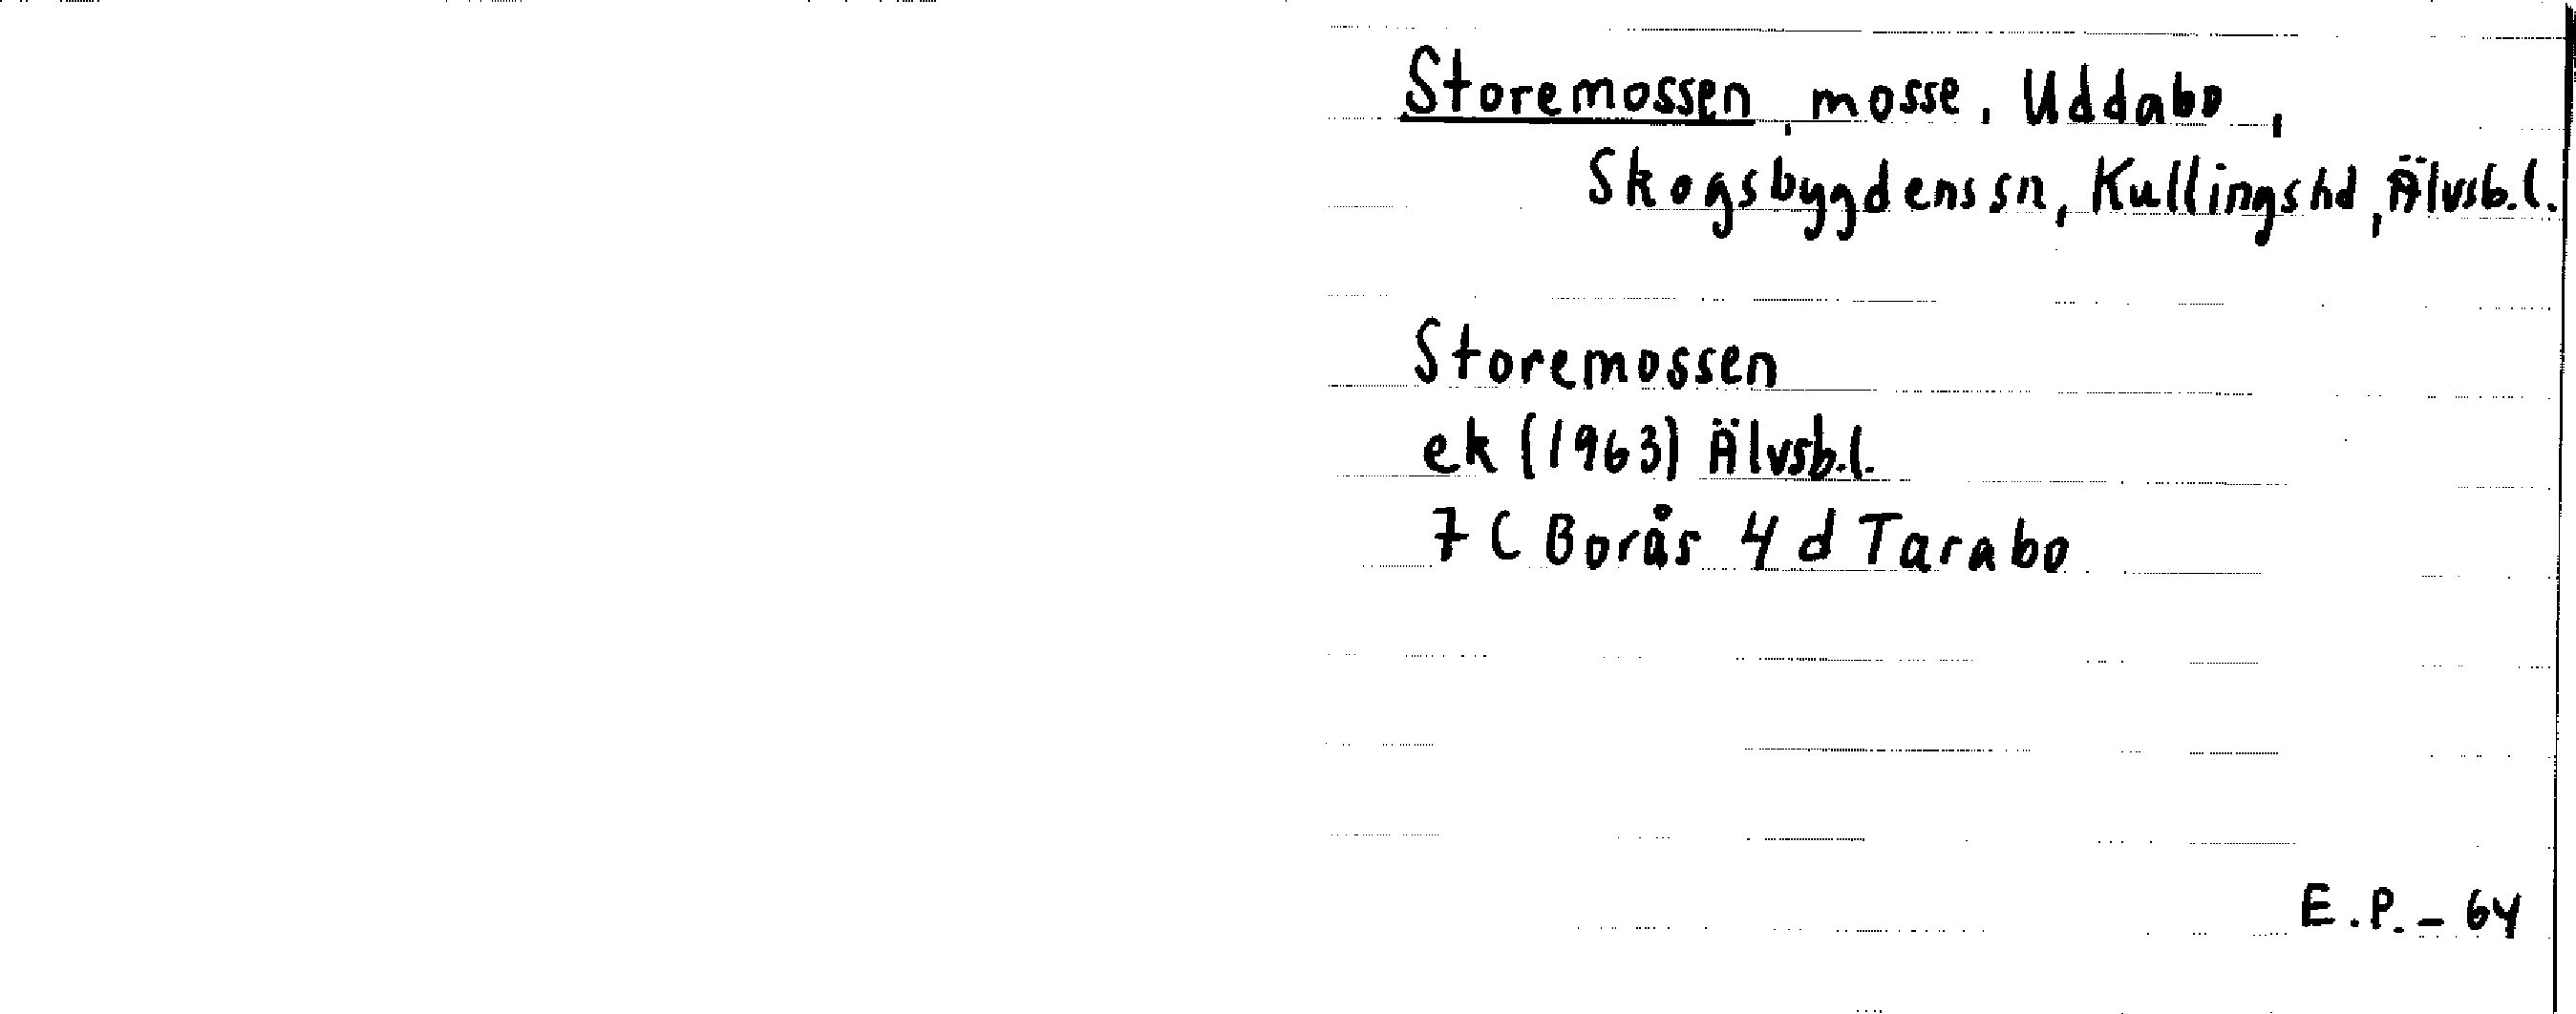 Storemossen, mosse, Uddabo,
Skogsbygdens sn, Kullings hd, Älvsb.l.
Storemossen
ek (1963) Älvsb.l.
7 C Borås 4 d Tarabo
E.P. - 64